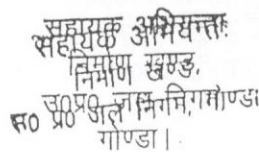 सहायक अभियन्ता
निर्माण खण्ड,
उ०प्र० जल निगम, गोण्डा
गोण्डा।